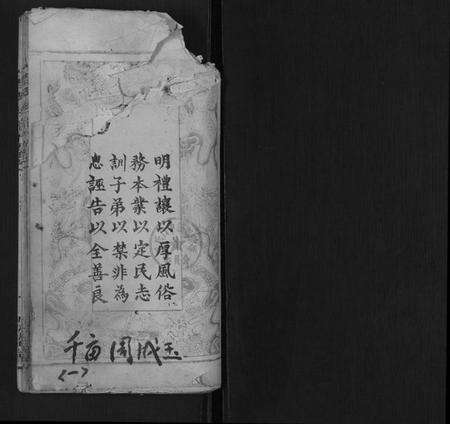 明禮讓以厚風俗
務本業以定民志
訓子弟以禁非為
息誣告以全善良
千亩 周成玉
<一>